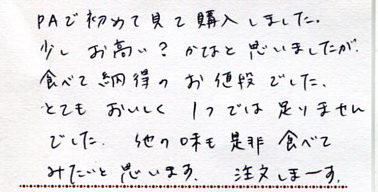 PAで初めて見て購入しました。
少しお高い?かなぁと思いましたが、
食べて納得のお値段でした。
とてもおいしく1つでは足りません
でした。他の味も是非食べて
みたいと思います。注文しまーす。